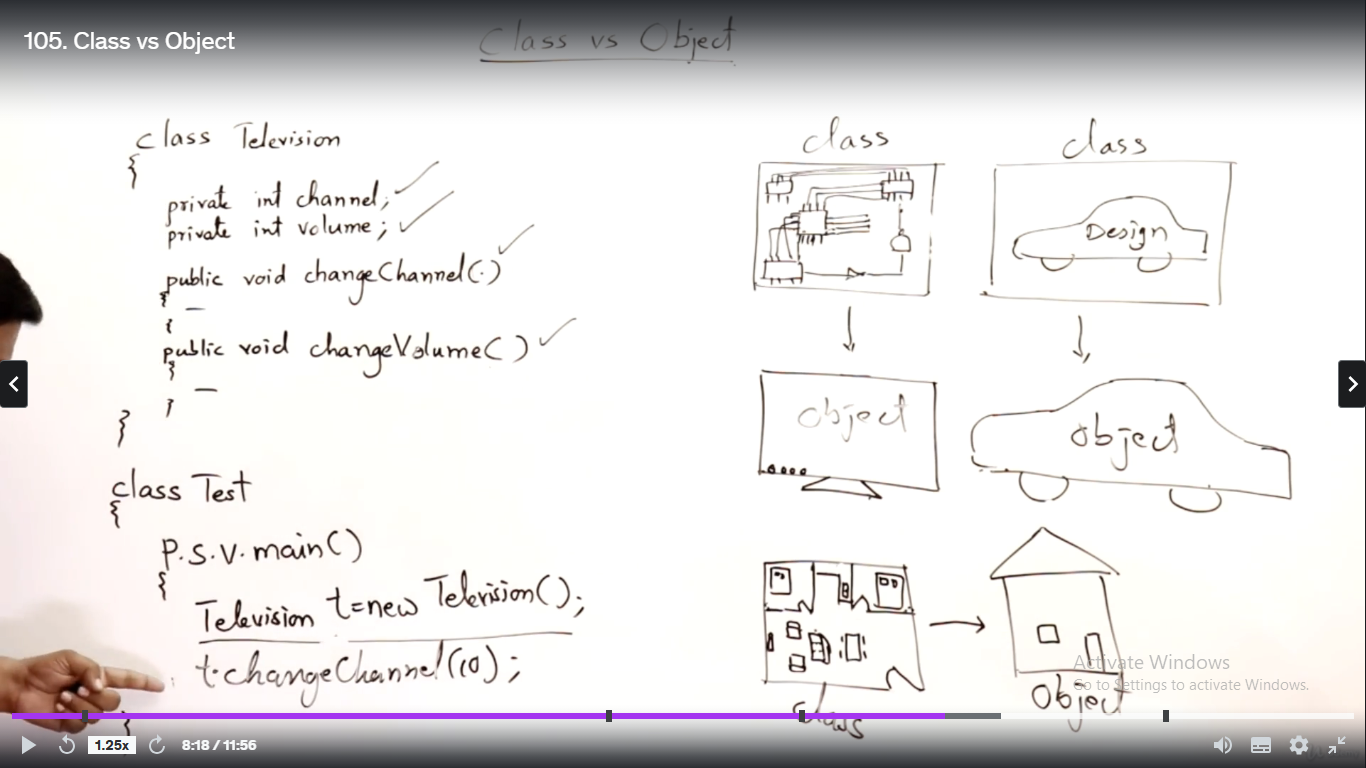 105. Class vs Object
Class vs Object
class Television
{
private int channel;
private int volume;
public void changeChannel(.)
{
—
}
public void changeVolume( )
{
—
}
}
class Test
{
P.S.V.main()
{
Television t=new Television();
t.changeChannel(10);
}
class
class
Design
object
object
class
Object
Activate Windows
Go to Settings to activate Windows.
1.25x
8:18 / 11:56